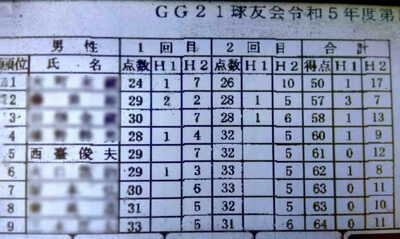 GG21球友会令和5年度第
男性 1回目 2回目 合計
順位 氏名 点数 H1 H2 点数 H1 H2 得点 H1 H2
1 24 1 7 26 10 50 1 17
2 29 2 2 28 1 5 57 3 7
3 30 7 28 1 6 58 1 13
4 28 1 4 32 5 60 1 9
5 西臺俊夫 29 7 32 5 61 0 12
6 29 1 3 33 5 62 1 8
7 30 6 33 5 63 0 11
8 31 5 32 5 63 0 10
9 33 5 31 6 64 0 11